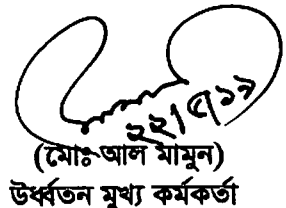 ২২/৫/১৯
(মোঃ আল মামুন)
উর্ধ্বতন মুখ্য কর্মকর্তা